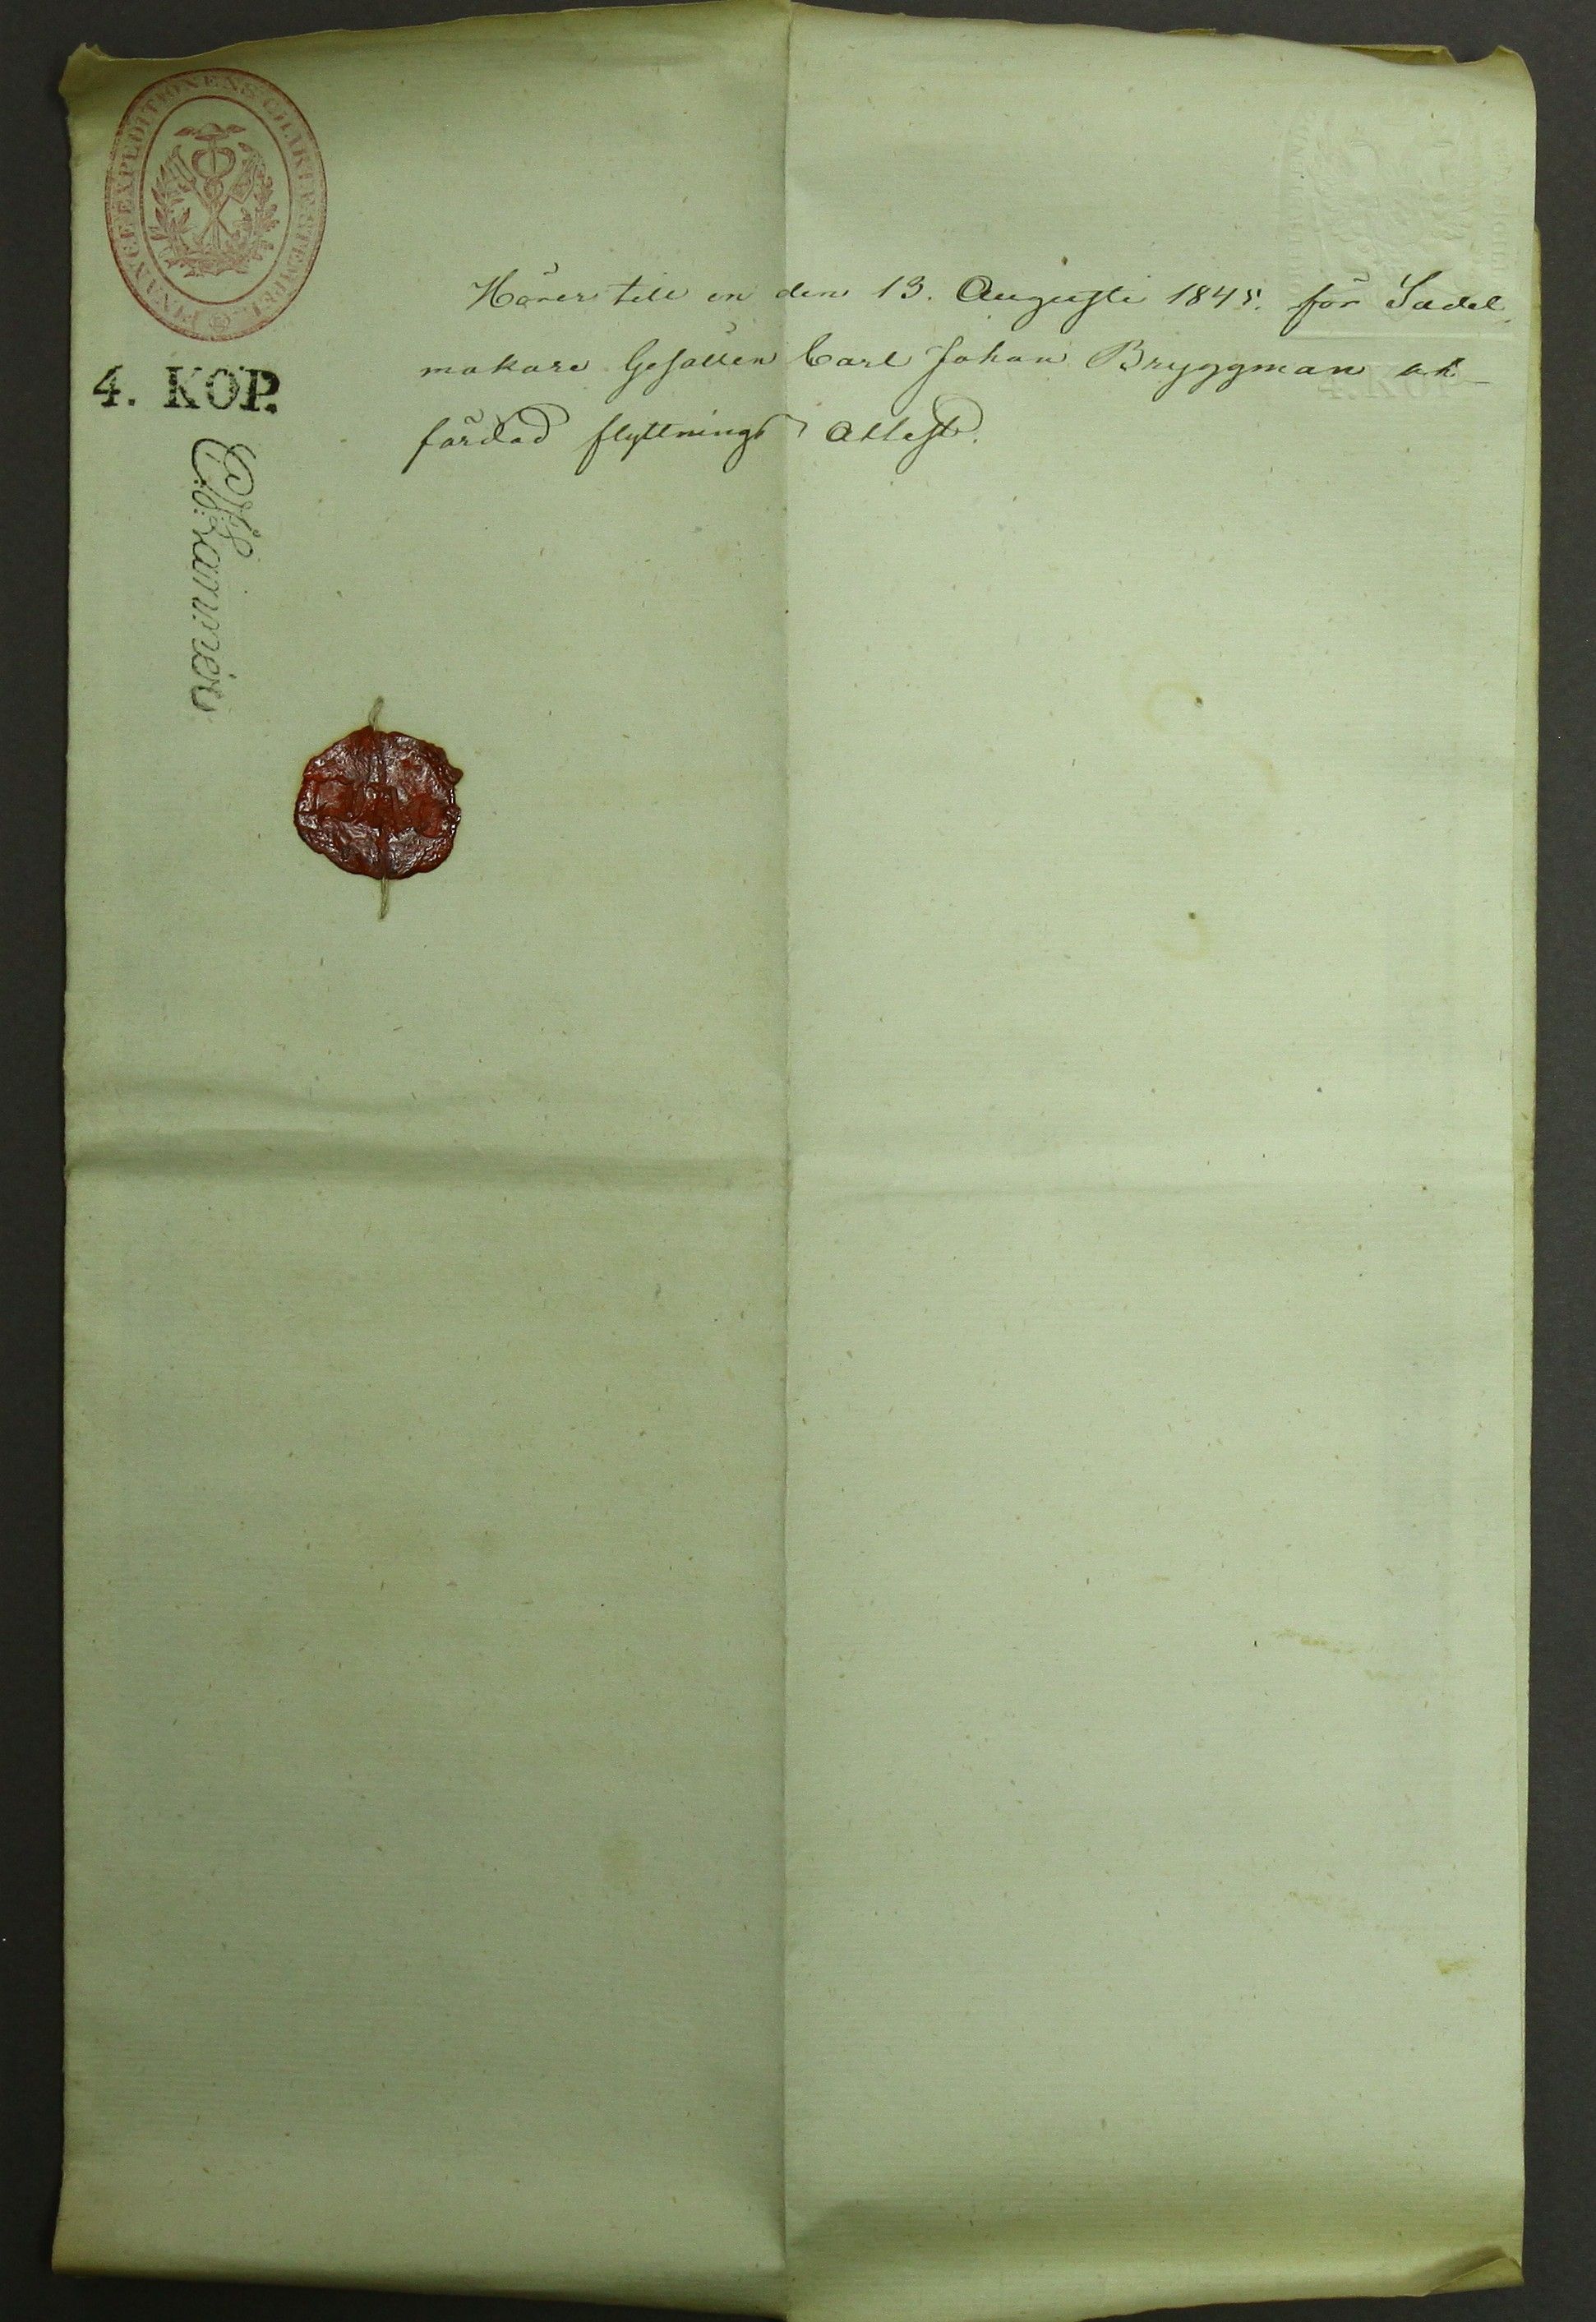 FINANCE EXPEDITIONENS CHARTÆ STEMPEL
4. KOP.
Hörer till en den 13. Augusti 1845. för Sadel
makare Gesällen Carl Johan Bryggman ut-
färdad flyttnings Attest.